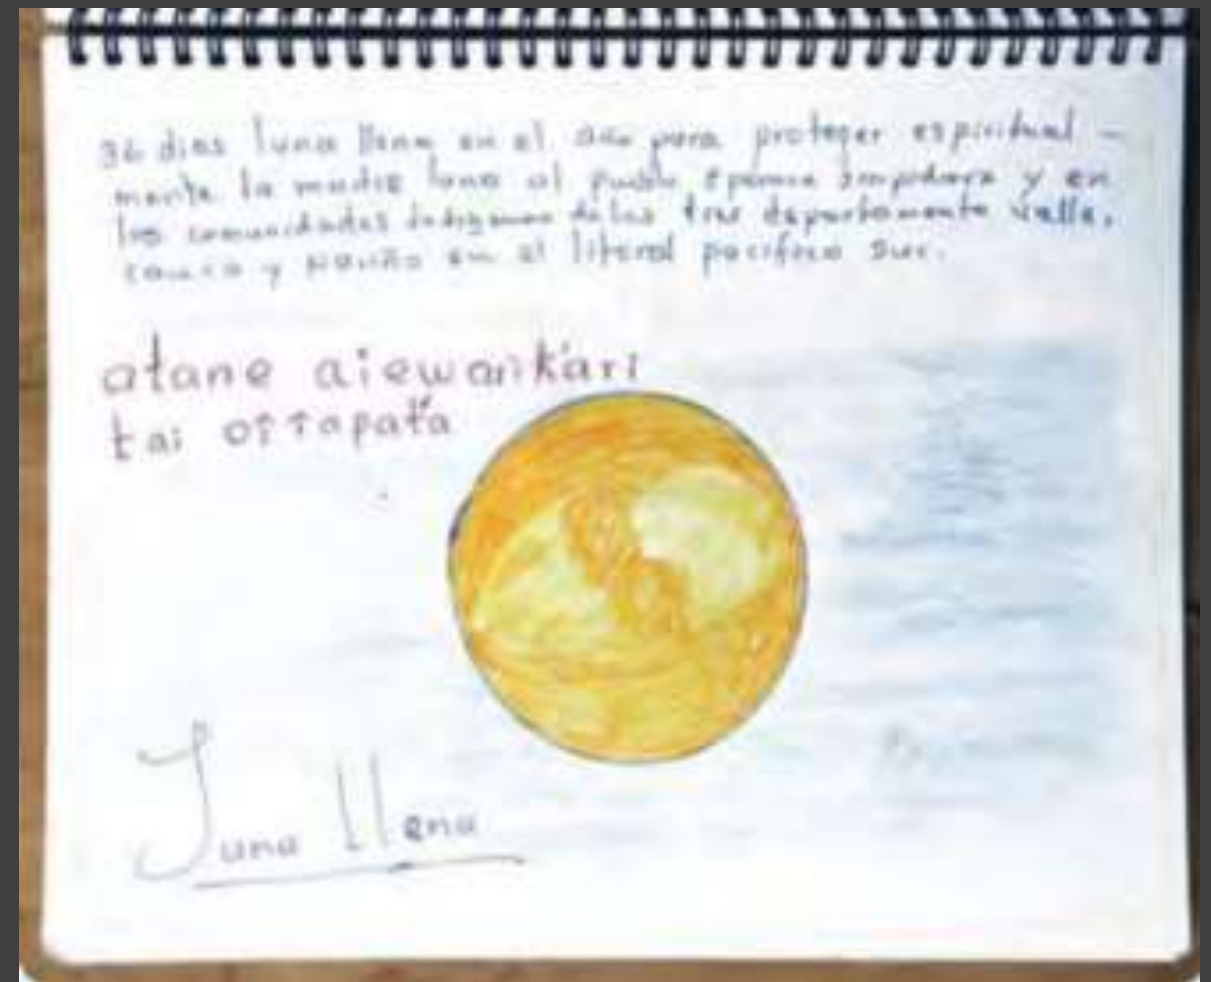 36 dias luna llena en el año para proteger espiritual-
mente la madre luna al pueblo eperara y en
las comunidades indigenas de los tres departamento valle,
cauca y nariño en el literal pacifico sur.
atane aiewarikʼari
tai orrapatʼa
Luna llena